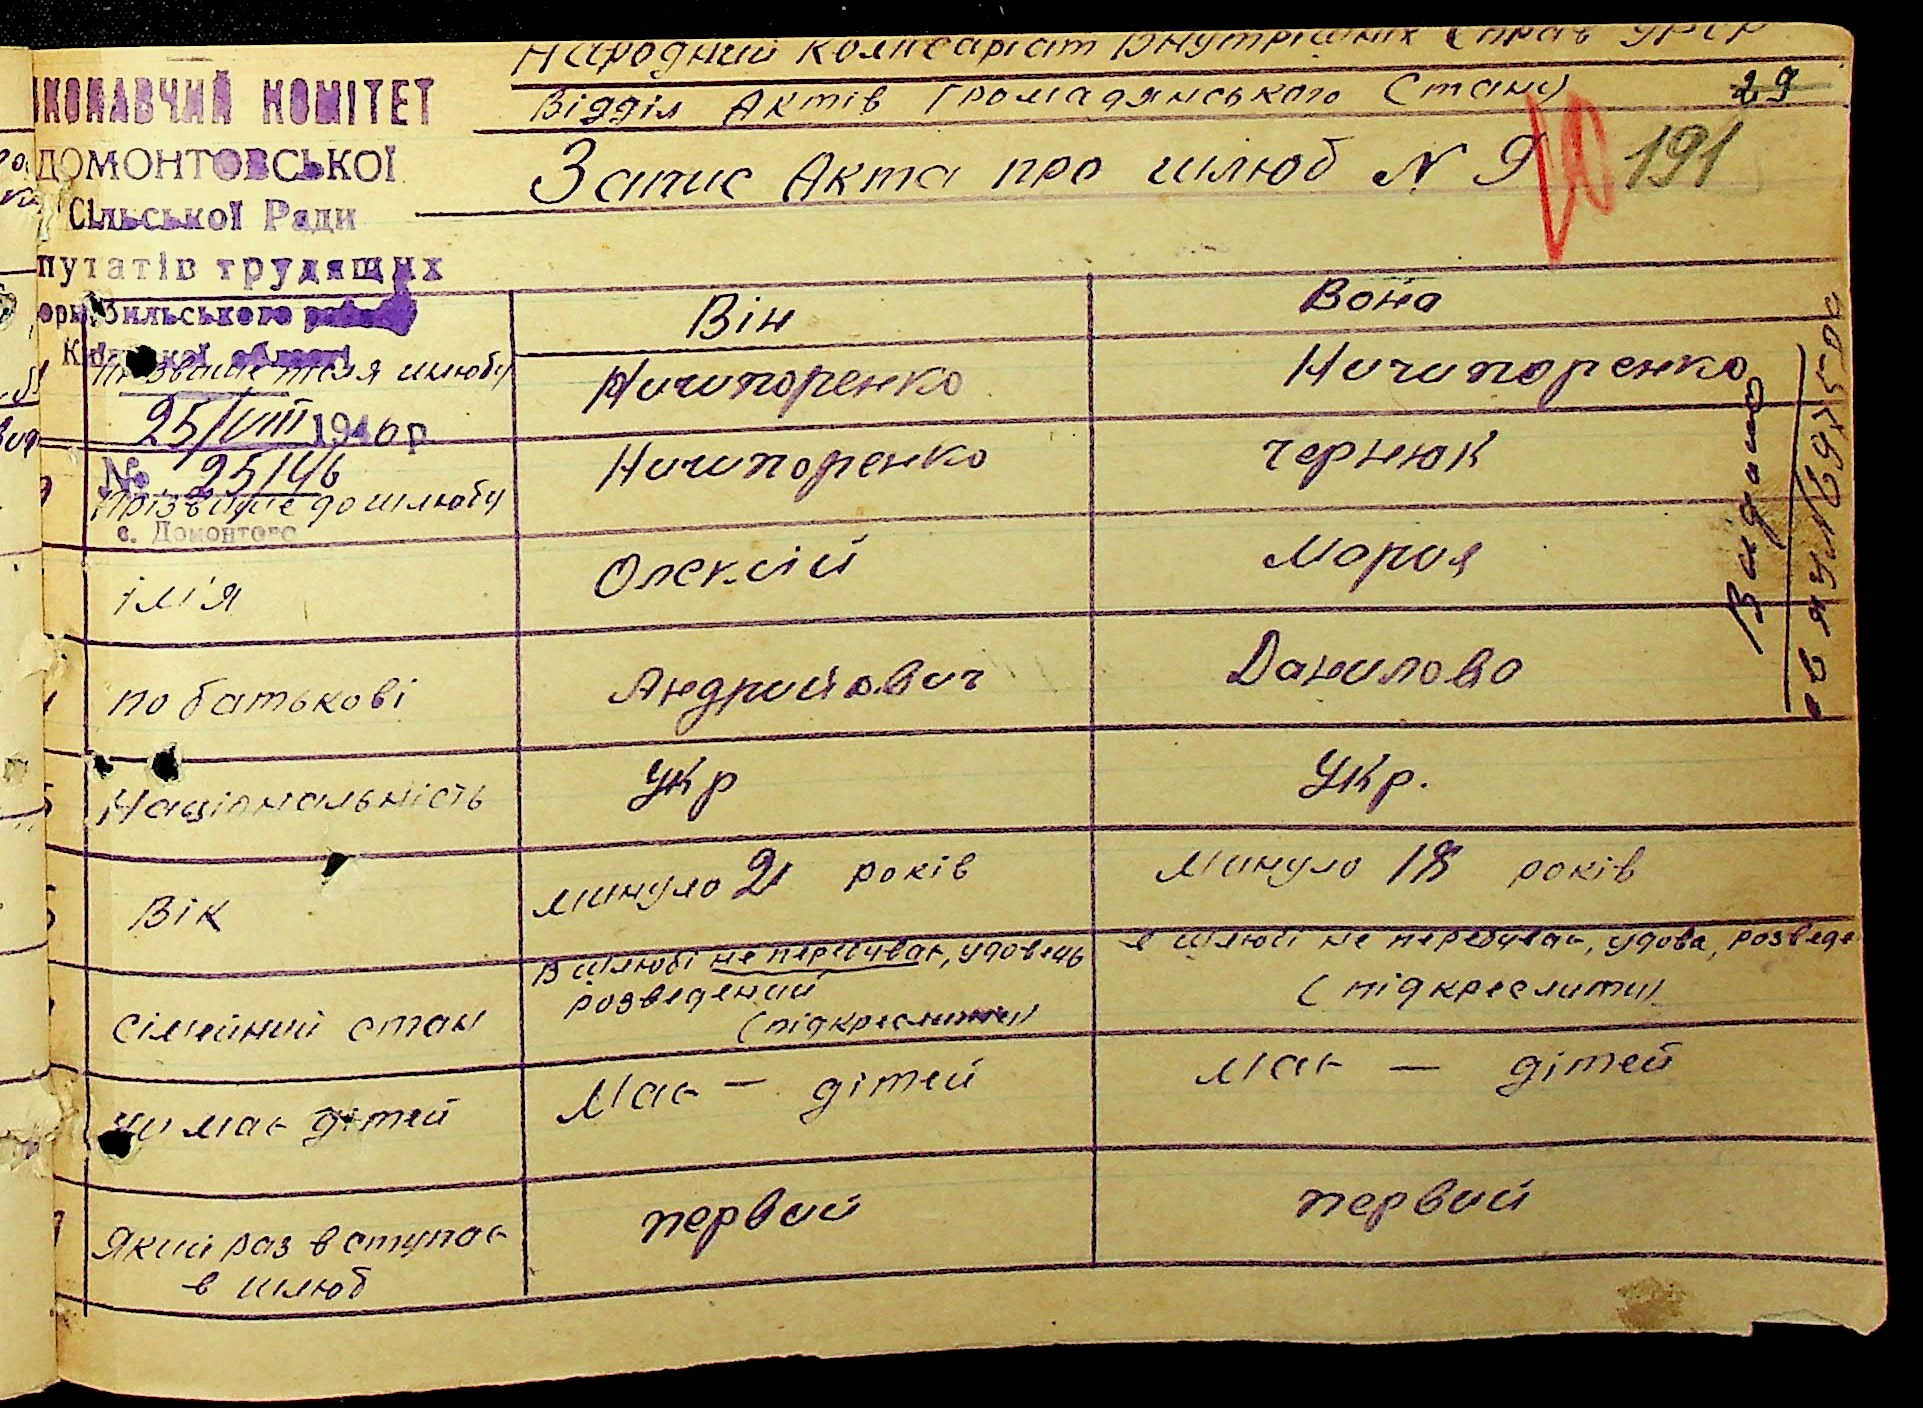 Народний Комісаріат Внутрішніх Справ УРСР
Відділ Актів Громадянського Стану
29
Запис Акта про шлюб N 9
191
КОНАВЧИЙ КОМІТЕТ
ДОМОНТОВСЬКОЇ
Сільської Ради
путатів трудящих
25/VIII 1946 р
№ 25/46
с. Домонтово
Він
Вона
Прізвище після шлюбу
Ничипоренко
Ничипоренко
Прізвище до шлюбу
Ничипоренко
Чернюк
ім'я
Олексій
Мория
по батькові
Андрийович
Данилово
Національність
Укр
Укр.
Вік
минуло 21 років
минуло 18 років
Сімейний стан
В шлюбі не перебував, удовець
розведений
(підкреслити)
в шлюбі не перебувас, удова, розведе
(підкреслити)
чи має дітей
Має — дітей
має — дітей
Який раз вступає
в шлюб
первий
первий
Видано